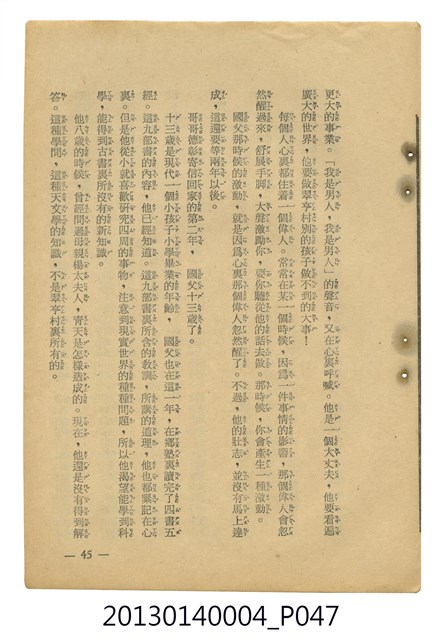 更大的事業。「我是男人，我是男人」的聲音，又在心裏呼喊。他是一個大丈夫，他要看遍
廣大的世界，他要做翠亨村別的孩子做不到的大事！
每個人心裏都住着一個偉人。常常在某一個時候，因爲一件事情的影響，那個偉人會忽
然醒過來，舒展手脚，大聲激勵你，要你聽從他的話去做。那時候，你會產生一種激動。
國父那時候的激動，就是因爲心裏那個偉人忽然醒了。不過，他的壯志，並沒有馬上達
成，這還要等兩年以後。
哥哥德彰寄信回家的第二年，國父十三歲了。
十三歲是現代一個小孩子小學畢業的年齡，國父也在這一年，在鄉塾裏讀完了四書五
經。這九部書的內容，他已經知道。這九部書裏所含的教訓，所講的道理，他也都緊記在心
裏。但是他從小就喜歡研究四周的事物，注意到現實世界的種種問題，所以他渴望能學到科
學，能得到古書裏所沒有的新知識。
他八歲的時候，曾經問過母親楊太夫人，靑天是怎樣造成的。現在，他還是沒有得到解
答。這種學問，這種天文學的知識，不是翠亨村裏所有的。
— 45 —
20130140004_P047